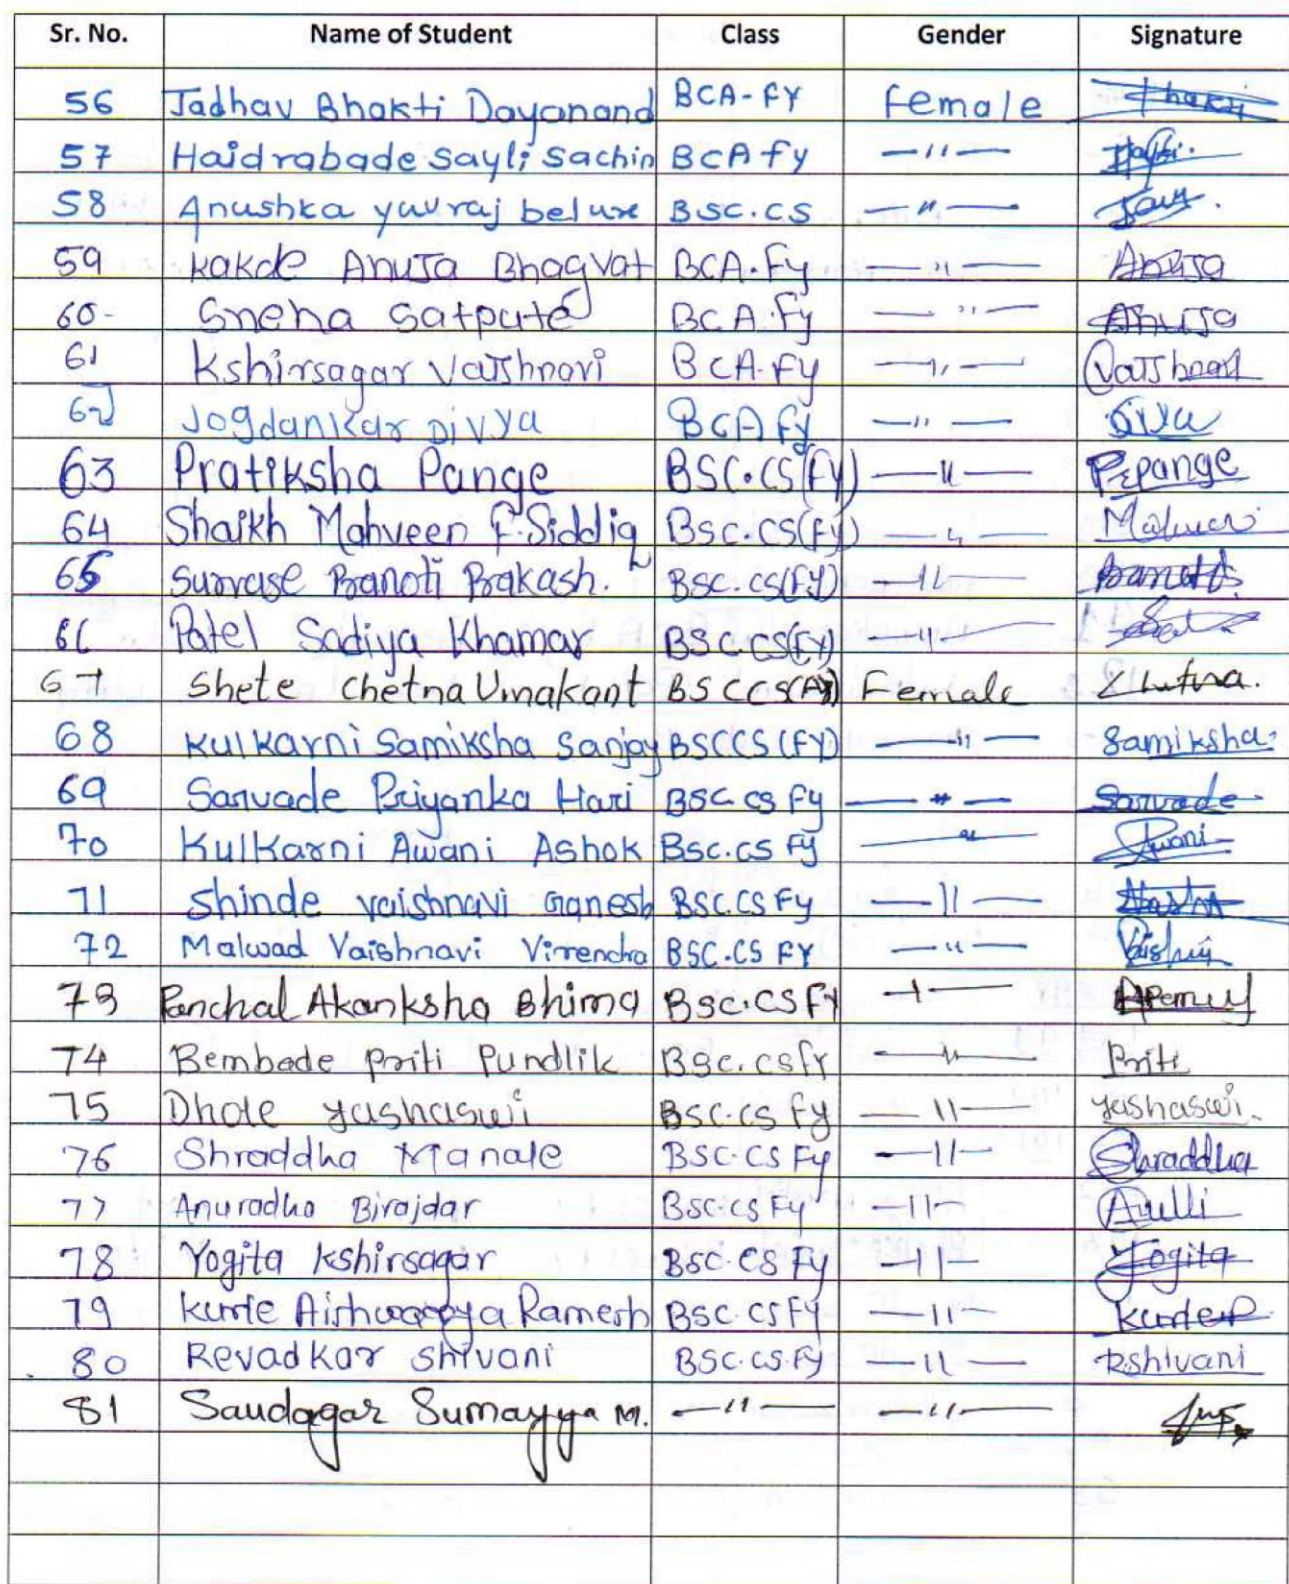 Sr. No. Name of Student Class Gender Signature
56 Jadhav Bhakti Dayanand BCA-FY Female Bhakti
57 Haidrabade Sayli Sachin BCA fy —11—
58 Anushka yuvraj belure BSC.CS —11—
59 Kakde Anuja Bhagvat BCA.Fy —11— Anuja
60- Sneha Satpute BCA.Fy —11— Anuja
61 Kshirsagar Vaishnavi BCA.Fy —11— Vaishnavi
62 Jogdankar Divya BCA fy —11— Divya
63 Pratiksha Pange BSC.CS(FY) —11— P.Pange
64 Shaikh Mahveen F.Siddiq BSC.CS(FY) —11— Mahveen
65 Survase Pranoti Prakash. BSC.CS(FY) —11— Pranoti
66 Patel Sadiya Khamar BSC.CS(FY) —11—
67 Shete Chetna Umakant BSCCS(FY) Female Chetna.
68 Kulkarni Samiksha Sanjay BSCCS (FY) —11— Samiksha
69 Sarvade Priyanka Hari BSC CS Fy —11— Sarvade
70 Kulkarni Awani Ashok BSC.CS Fy —11— Awani
71 Shinde vaishnavi Ganesh BSC.CS Fy —11—
72 Malwad Vaishnavi Virendra BSC.CS FY —11—
73 Panchal Akanksha Bhima BSC.CS FY —11—
74 Bembade Priti Pundlik BSC.CS FY —11— Priti
75 Dhole Yashaswi BSC.CS Fy —11— Yashaswi.
76 Shraddha Manale BSC.CS Fy —11— Shraddha
77 Anuradha Birajdar BSC.CS Fy —11—
78 Yogita Kshirsagar BSC.CS Fy —11— Yogita
79 Kurle Aishwarya Ramesh BSC.CS FY —11—
80 Revadkar Shivani BSC.CS.FY —11— R.Shivani
81 Saudagar Sumayya M. —11— —11—